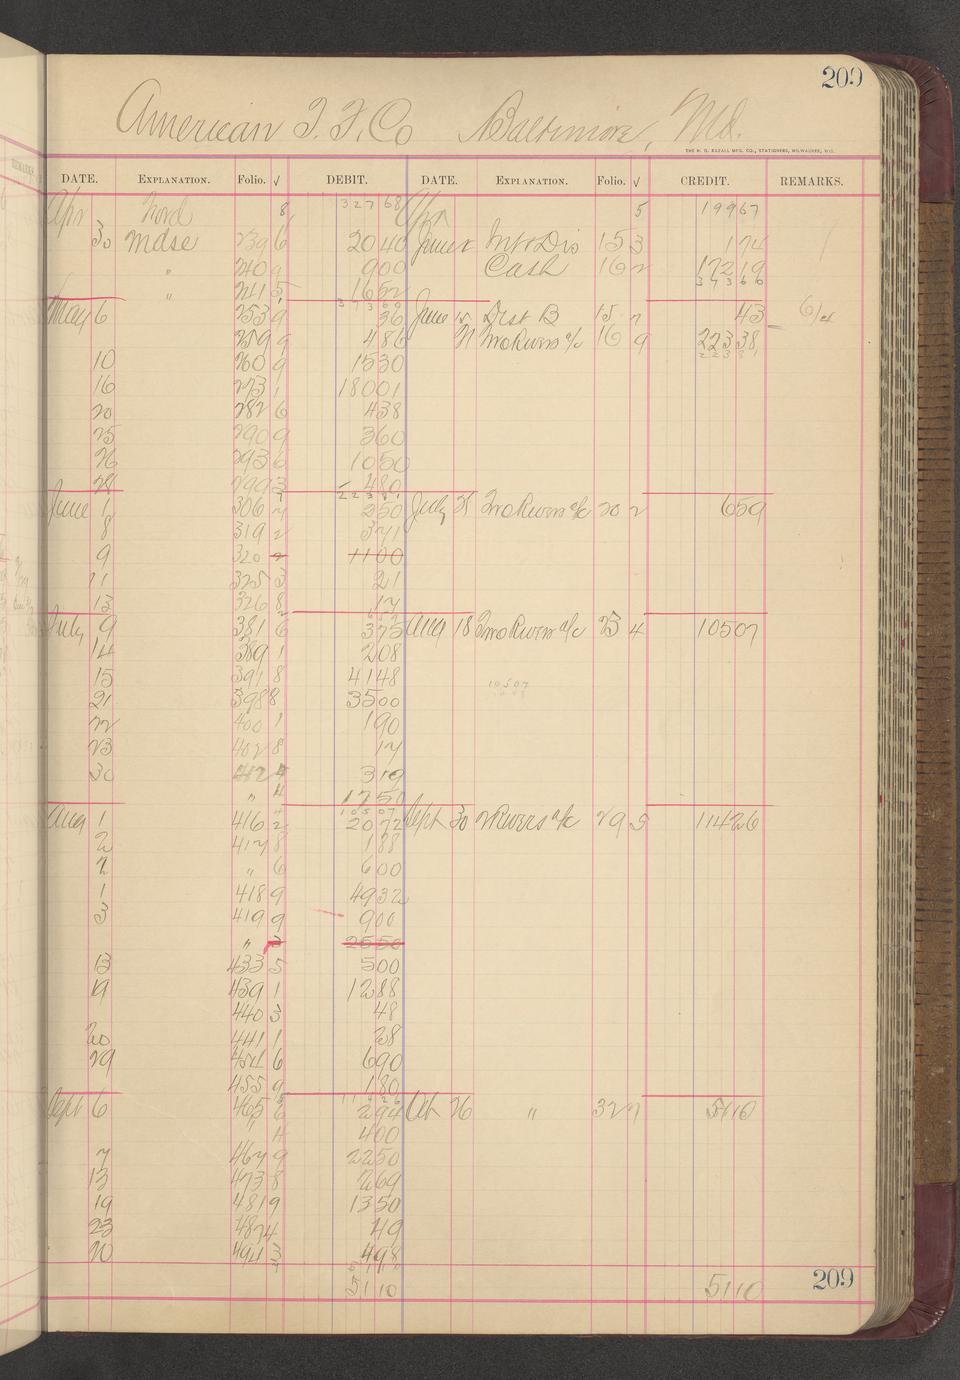 209
American T. F. Co Baltimore, Md.
THE H. G. RAZALL MFG. CO., STATIONERS, MILWAUKEE, WIS.
DATE. EXPLANATION. Folio. √ DEBIT. DATE. EXPLANATION. Folio. √ CREDIT. REMARKS.
Apr 8 32768 Apr 5 19967
30 Mdse 239 6 2040 June Int & Dis 15 3 174
" 240 9 900 Cash 16 2 17219
" 241 5 1652 37360
May 6 253 9 36 June 15 Dist B 15 2 43
259 9 486 21 Jno Rivers a/c 16 9 22338
10 260 9 1530 22381
16 273 1 18001
20 282 6 438
25 290 9 360
26 293 6 1050
28 299 3 480
22381
June 1 306 2 250 July 21 Jno Rivers a/c 20 2 659
8 319 2 371
9 320 2 1100
11 325 3 21
13 326 8 17
July 9 381 6 375 Aug 18 Jno Rivers a/c 23 4 10507
14 389 1 208
15 391 8 4148 10507
21 398 8 3500
22 400 1 190
23 402 8 17
30 412 4 319
" 4 1750
10507
Aug 1 416 2 2072 Sept 30 Rivers a/c 29 5 11426
2 417 8 188
2 " 6 600
1 418 9 4932
3 419 9 900
" 2550
13 433 5 500
19 439 1 1288
440 3 48
20 441 1 28
29 454 6 690
455 9 180
Sept 6 465 6 294 Oct 26 " 32 7 5110
" 4 400
7 467 9 2250
13 473 8 269
19 481 9 1350
23 487 4 49
20 494 3 498
5110 5110
209